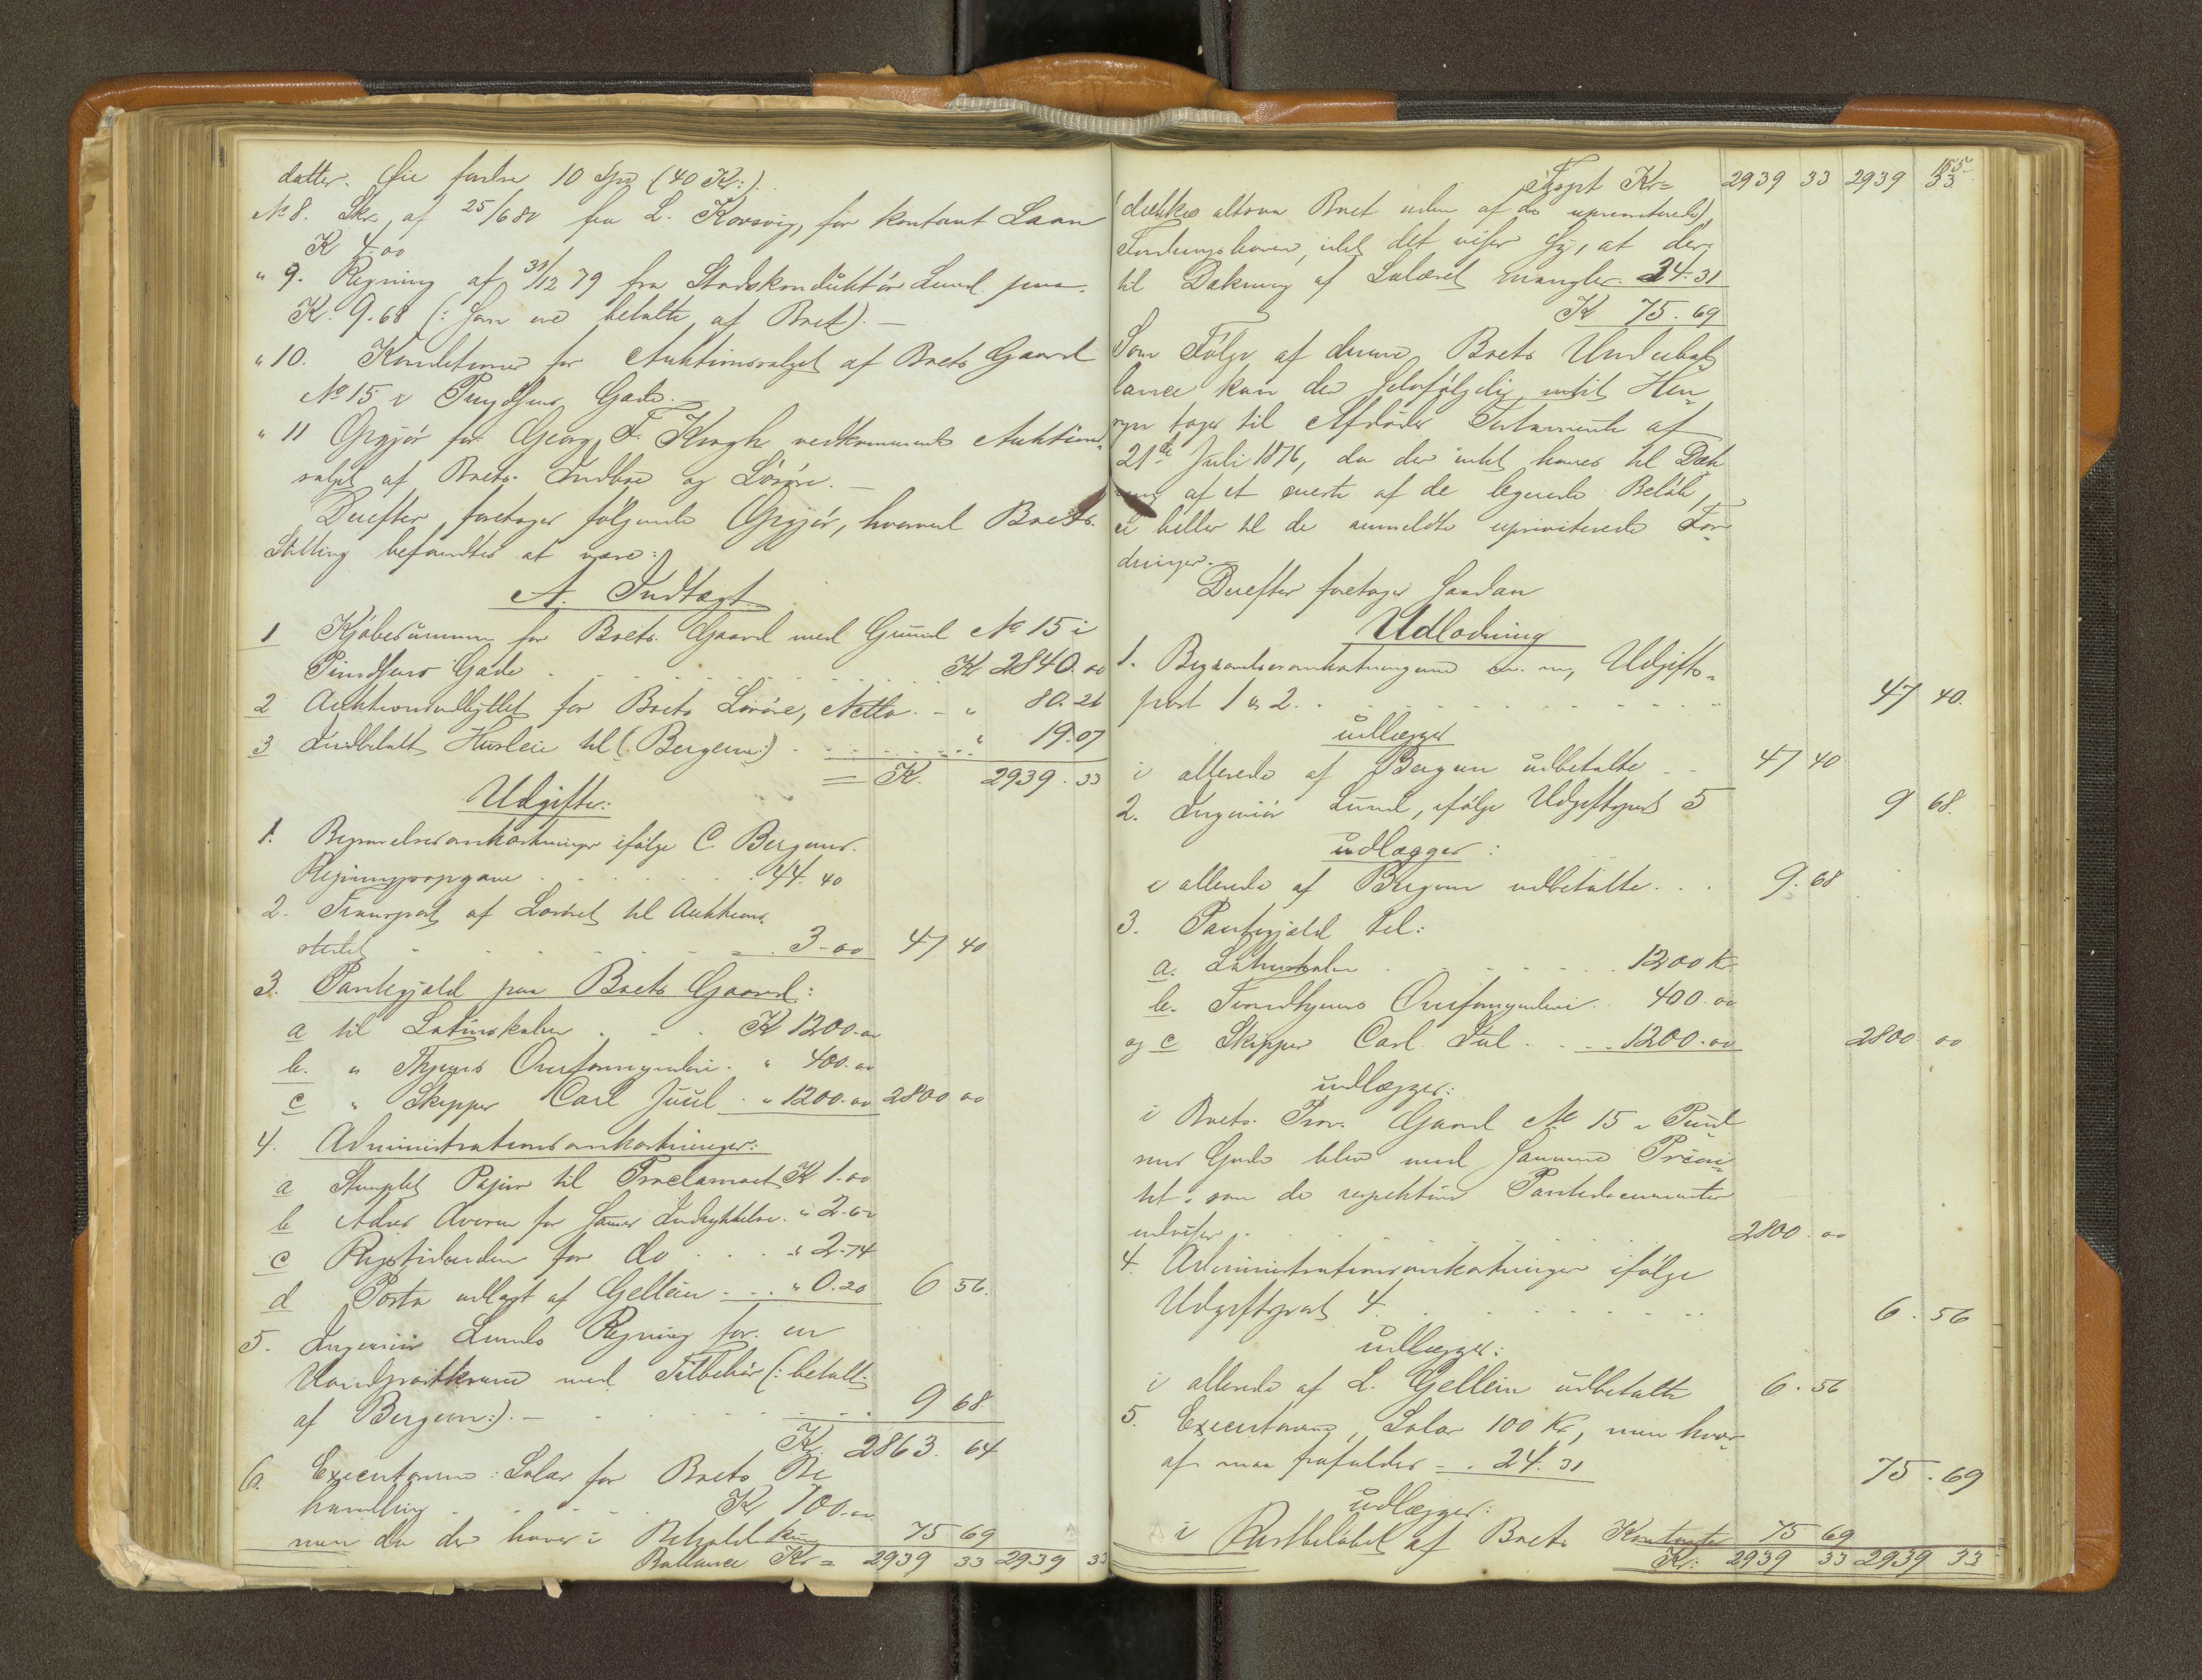 datter. fordrer 10 Spd (40 Kr:).
No 8. Skr. af 25/6 80 fra L. Korsvig, for kontant Laan
K 4.00
" 9. Regning af 31/12 79 fra Stadskonduktör Lund paa
K. 9.68 (: som er betalte af Boet). —
" 10. Konditioner for Auktionssalget af Boets Gaard
No 15 i Gade.
" 11 Opgjör fra Georg F. Krogh vedkommende Auktions-
salget af Boets Indbo og Lösöre. —
Derefter foretoges følgende Opgjör, hvorved Boets
Stilling befandtes at være:
A. Indtægt
1 Kjöbesummen for Boets Gaard med Grund No 15 i
Gade . . . Kr 2840.00
2 Auktionsudbyttet for Boets Lösöre, Netto. — " 80.26
3 Indbetalt Husleie til (: Bergem:) . . . " 19.07
= K. 2939.33
Udgifter:
1. Begravelsesomkostninger ifölge C. Bergems
Regningsopgave . . . 44.40
2. Transport af Lösöret til Auktions-
stedet . . . 3-00 47 40
3. Pantegjæld paa Boets Gaard:
a til Latinskolen . . . K 1200.00
b. " Thjems Overformynderi. " 400.00
c " Skipper Carl Juul . " 1200.00 2800 00
4. Administrationsomkostninger:
a Stemplet Papir til Proclamaet K 1.00
b Adres Avisen for Sammes Indrykkelse. "
c Rigstidenden for do . . . " 2.74
d Porto udlagt af Gellein . . . " 0.20 6 56.
5. Ingeniör Lunds Regning for en
Vandpostkrane med Tilbehör (: betalt
af Bergem:). — . . . 9 68
Kr. 2863. 64
6. Executorens Salær for Boets Be
handling . . . K 100.00
men da der haves i Behold kun 75 69
Ballance Kr = 2939 33 2939 33
155
Tspt Kr = 2939 33 2939 33
(dækkes altsaa Boet uden af de upriviterede)
Fordringshavere, idet det viser sig, at der
til Dækning af Salæret mangler 24.31
K 75.69
Som Fölge af denne Boets Underbal
lance kan der selvfölgelig intet Hen-
syn tages til Afdödes Testamente af
21de Juli 1876, da der intet haves til Dæk
ning af et eneste af de legerede Belöb,
ei heller til de anmeldte upriviterede For-
dringer.—
Derefter foretoges saadan
Udlodning
1. Begravelsesomkostningerne m. m., Udgifts-
post 1 & 2 . . . 47 40.
udlægges
i allerede af Bergem udbetalte . . 47 40
2. Ingeniör Lund, ifölge Udgiftspost 5 9 68.
udlægges:
i allerede af Bergem udbetalte . . . 9.68
3. Pantegjæld til:
a. Latinskolen . . . 1200 Kr.
b. Trondhjems Overformynderi . . 400.00
og c Skipper Carl Jul . . . 1200.00 2800 00
udlægges:
i Boets Gaard No 15 i
Gade blev med samme Priori-
tet, som de respektive Pantedocumenter
udviser . . . 2800.00
4. Administrationsomkostninger ifölge
Udgiftspost 4. . . . 6.56
udlægges:
i allerede af L. Gellein udbetalte 6.56
5. Executorens Salær 100 Kr, men hvor-
af maa frafaldes = . 24.31 75.69
udlægges:
i Restbelöbet af Boets Kontanter 75 69
Kr: 2939 33 2939 33